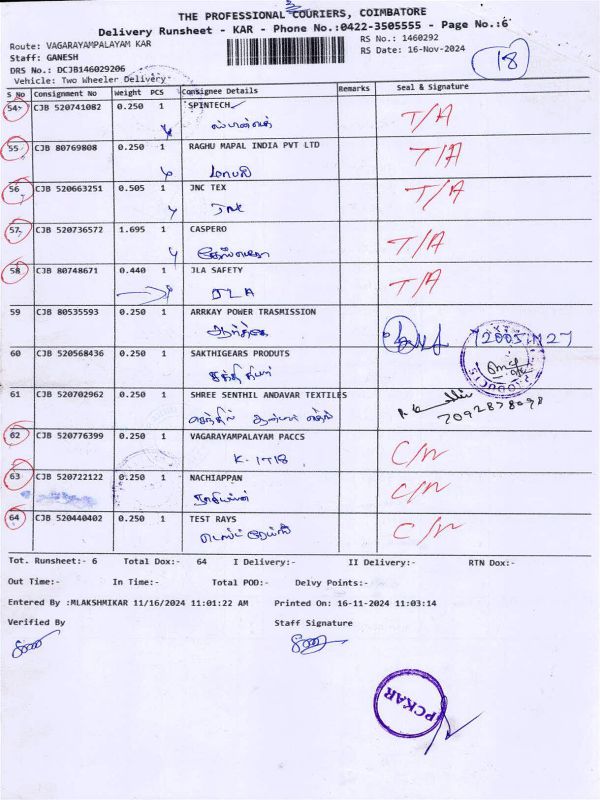 THE PROFESSIONAL COURIERS, COIMBATORE
Delivery Runsheet - KAR - Phone No.:0422-3505555 - Page No.:6
Route: VAGARAYAMPALAYAM KAR
RS No.: 1460292
Staff: GANESH
RS Date: 16-Nov-2024
18
DRS No.: DCJB146029206
Vehicle: Two Wheeler Delivery
S No Consignment No Weight PCS Consignee Details Remarks Seal & Signature
54 CJB 520741082 0.250 1 SPINTECH T/A
55 CJB 80769808 0.250 1 RAGHU MAPAL INDIA PVT LTD T/A
56 CJB 520663251 0.505 1 JNC TEX T/A
57 CJB 520736572 1.695 1 CASPERO T/A
58 CJB 80748671 0.440 1 JLA SAFETY T/A
JLA
59 CJB 80535593 0.250 1 ARRKAY POWER TRASMISSION
60 CJB 520568436 0.250 1 SAKTHIGEARS PRODUTS
61 CJB 520702962 0.250 1 SHREE SENTHIL ANDAVAR TEXTILES
7092878098
62 CJB 520776399 0.250 1 VAGARAYAMPALAYAM PACCS C/N
63 CJB 520722122 0.250 1 NACHIAPPAN C/N
64 CJB 520440402 0.250 1 TEST RAYS C/N
Tot. Runsheet:- 6 Total Dox:- 64 I Delivery:- II Delivery:- RTN Dox:-
Out Time:- In Time:- Total POD:- Delvy Points:-
Entered By :MLAKSHMIKAR 11/16/2024 11:01:22 AM Printed On: 16-11-2024 11:03:14
Verified By Staff Signature
PCKAR